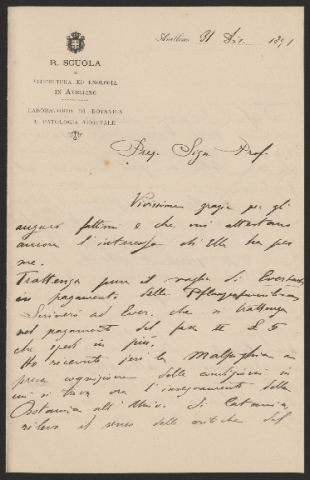 R. SCUOLA
DI
VITICOLTURA ED ENOLOGIA
IN AVELLINO
LABORATORIO DI BOTANICA
E PATOLOGIA VEGETALE
Avellino 31 Dic. 1891
Preg. Sigr Prof.
Vivissime grazie per gli
auguri fattimi e che mi attestano
ancora l'interesse che Ella ha per
me.
Trattenga pure il vaglia di
in pagamento delle
Scriverò ad Ever. che si trattenga
nel pagamento del fasc. £ 5
che spedì in più.
Ho ricevuto jeri la Malpighia e
presa cognizione delle condizioni in
cui si trova ora l'insegnamento della
Botanica all'Univ. di Catania,
rilevo il senso delle critiche del